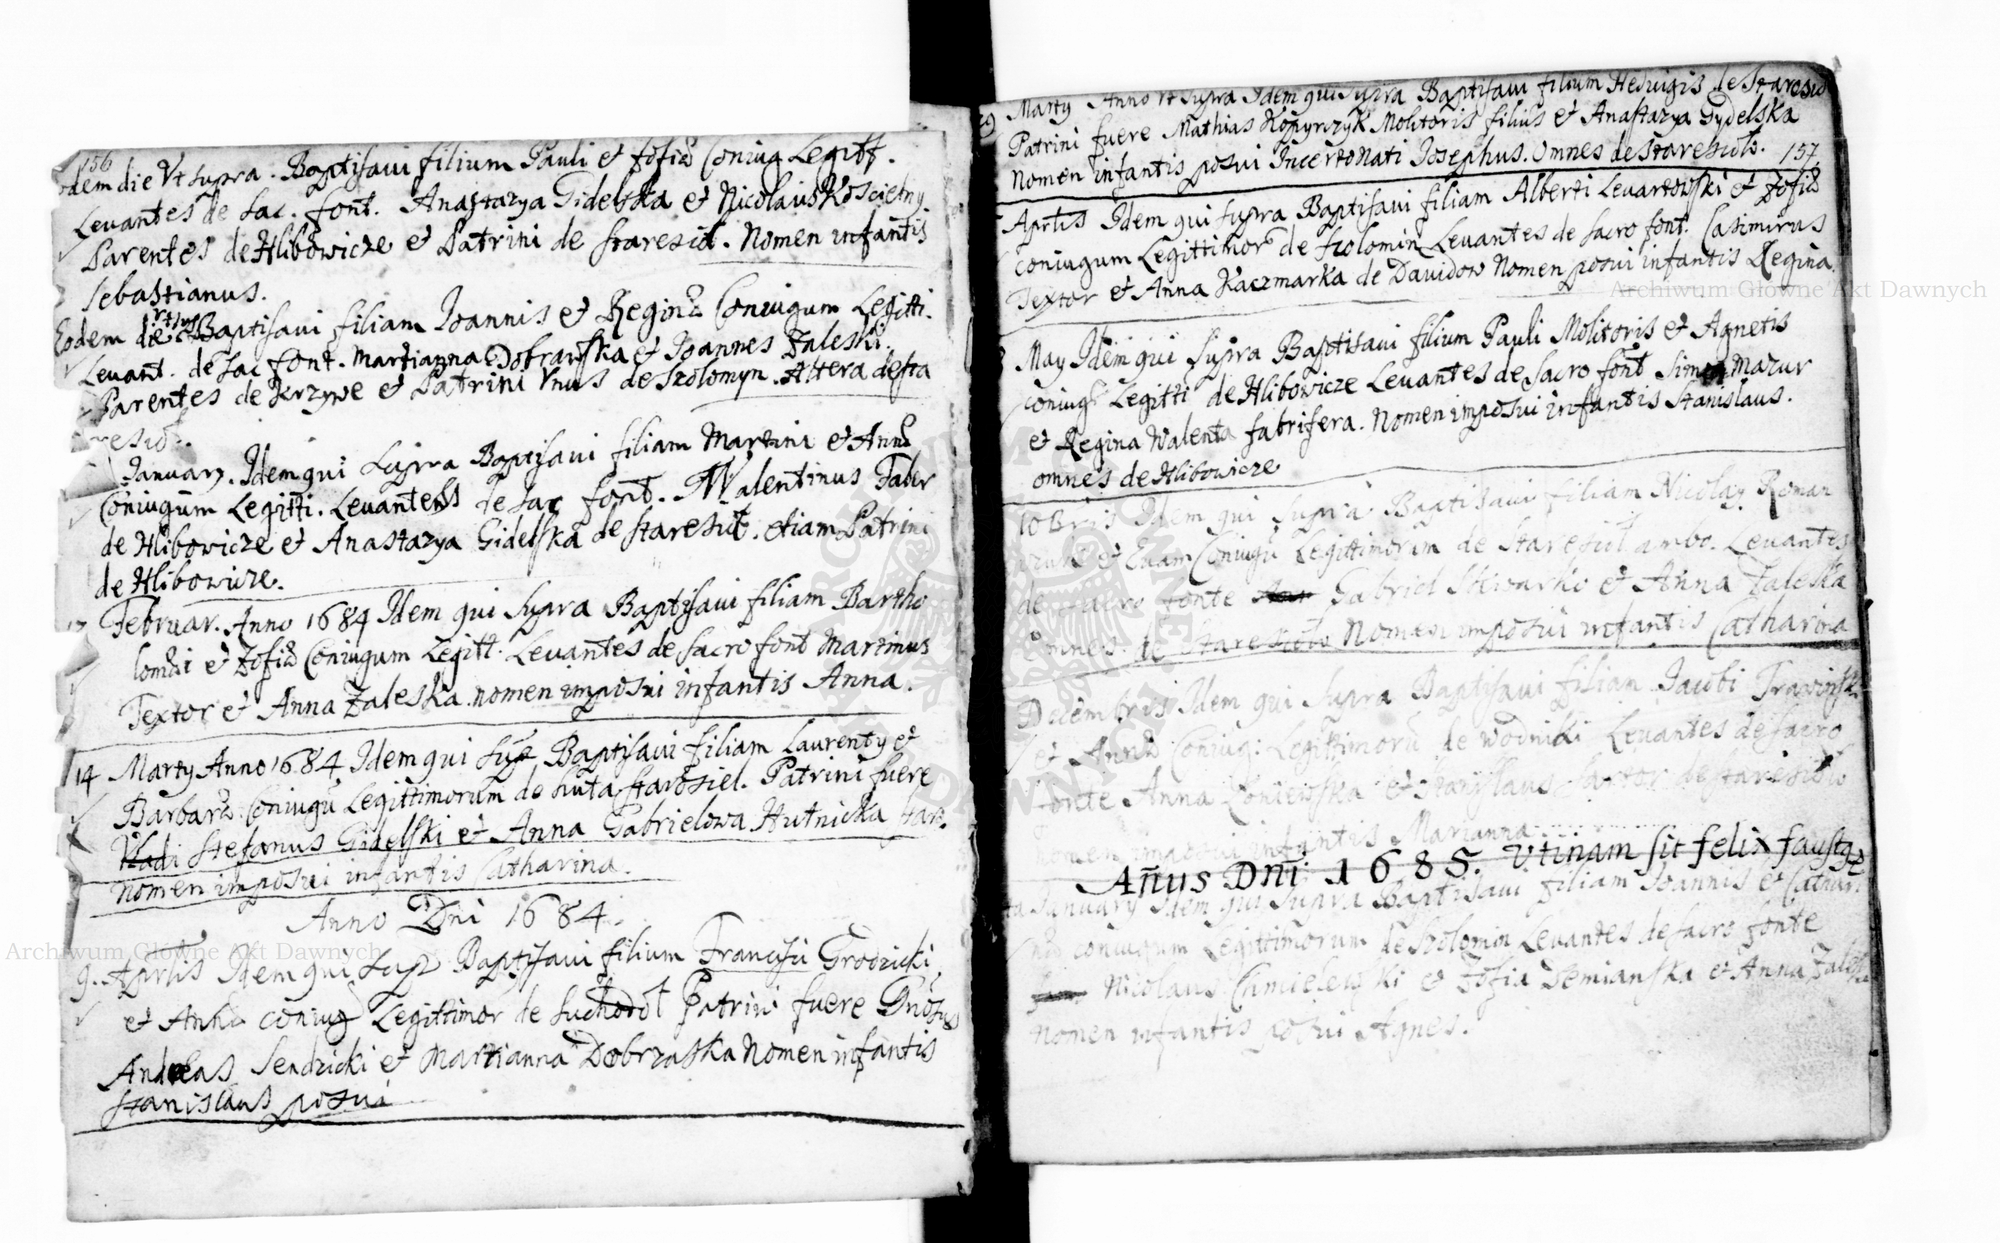 156
odem die Vt supra. Baptisaui filium Pauli et Zofiæ Coniug Legitt.
Leuantes de Sac. font. Anastazya Gidelska et Nicolaus Koscielny.
Parentes de Hlibowicze et Patrini de Staresiol. Nomen infantis
Sebastianus.
Eodem die vt sup Baptisaui filiam Ioannis et Reginæ Coniugum Legitti.
Leuant. de Sac font. Martianna Dobrawska et Ioannes Zaleski.
Parentes de Krzywe et Patrini Vnus de Szolomyn. Altera de sta
resiol.
January. Idem qui supra Baptisaui filiam Martini et Annæ
Coniugum Legitti. Leuantes de sac font. Walentinus Faber
de Hlibowicze et Anastazya Gidelska de staresiol. etiam Patrini
de Hlibowicze.
Februar. Anno 1684 Idem qui supra Baptisaui filiam Bartho
lomæi et Zofiæ Coniugum Legitt. Leuantes de sacro font Martinus
Textor et Anna Zaleska. nomen imposui infantis Anna.
14 Marty Anno 1684 Idem qui sup Baptisaui filiam Laurenty et
Barbaræ Coniugū Legittimorum de huta starosiel. Patrini fuere
Stefanus Gidelski et Anna Gabrielowa Hutnicka
Nomen imposui infantis Catharina.
Anno Dni 1684.
9. Aprlis Idem qui sup Baptisaui filium Francisci Grodzicki
et Anna coniug Legittimor de Suchodol Patrini fuere Gnosus
Andreas Sendzicki et Martianna Dobrzaska Nomen infantis
Stanislaus posui
29 Marty Anno vt supra Idem qui supra Baptisaui filium Heduigis de Staresiol
Patrini fuere Mathias Kopyrczyk Molitoris filius et Anastazya Gydelska
Nomen infantis posui Incerto Nati Iosephus. Omnes de Staresiolo. 157
Aprlis Idem qui supra Baptisaui filiam Alberti Leuartowski et Zofiæ
coniugum Legittimor de Szolomin Leuantes de sacro font. Casimirus
Textor et Anna Kaczmarka de Dauidow Nomen posui infantis Regina.
May Idem qui supra Baptisaui filium Pauli Molitoris et Agnetis
coniug Legitti de Hlibowicze Leuantes de sacro font Simon Mazur
et Regina Walenta fabrifera. Nomen imposui infantis Stanislaus.
omnes de Hlibowicze
10bris Idem qui supra Baptisaui filiam Nicolay Roman
et Euam Coniugū Legittimorum de Staresiol ambo. Leuantes
de sacro fonte Gabriel Skwarko et Anna Zaleska
omnes. de Staresiolo Nomen imposui infantis Catharina
Decembris Idem qui supra Baptisaui filiam Iacobi
et Annæ Coniug: Legittimorū de Wodniki Leuantes de sacro
fonte Anna Loniewska et Stanislaus Sartor de staresiolo
nomen imposui infantis Marianna
Añus Dni 1685. Vtinam sit felix faustq
January Idem qui supra Baptisaui filiam Ioannis et Cathari
næ coniugum Legittimorum de Szolomin Leuantes de sacro fonte
Nicolaus Chmielewski et Zofia Demianska et Anna Zaleska
Nomen infantis posui Agnes.
Archiwum Główne Akt Dawnych
Archiwum Główne Akt Dawnych